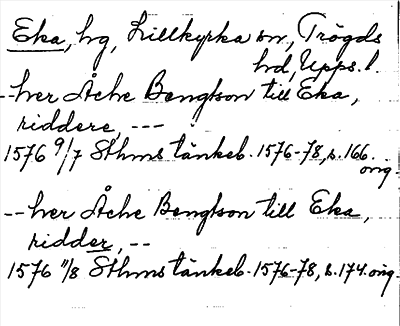 Eka, hg, Lillkyrka sn, Trögds
hd, Upps. l.
-- her Åche Bengtson till Eka,
riddere, ---
1576 9/7 Sthms tänkeb. 1576-78, s. 166.
orig.
-- her Åche Bengtson till Eka,
ridder, --
1576 11/8 Sthms tänkeb. 1576-78, s. 174. orig.